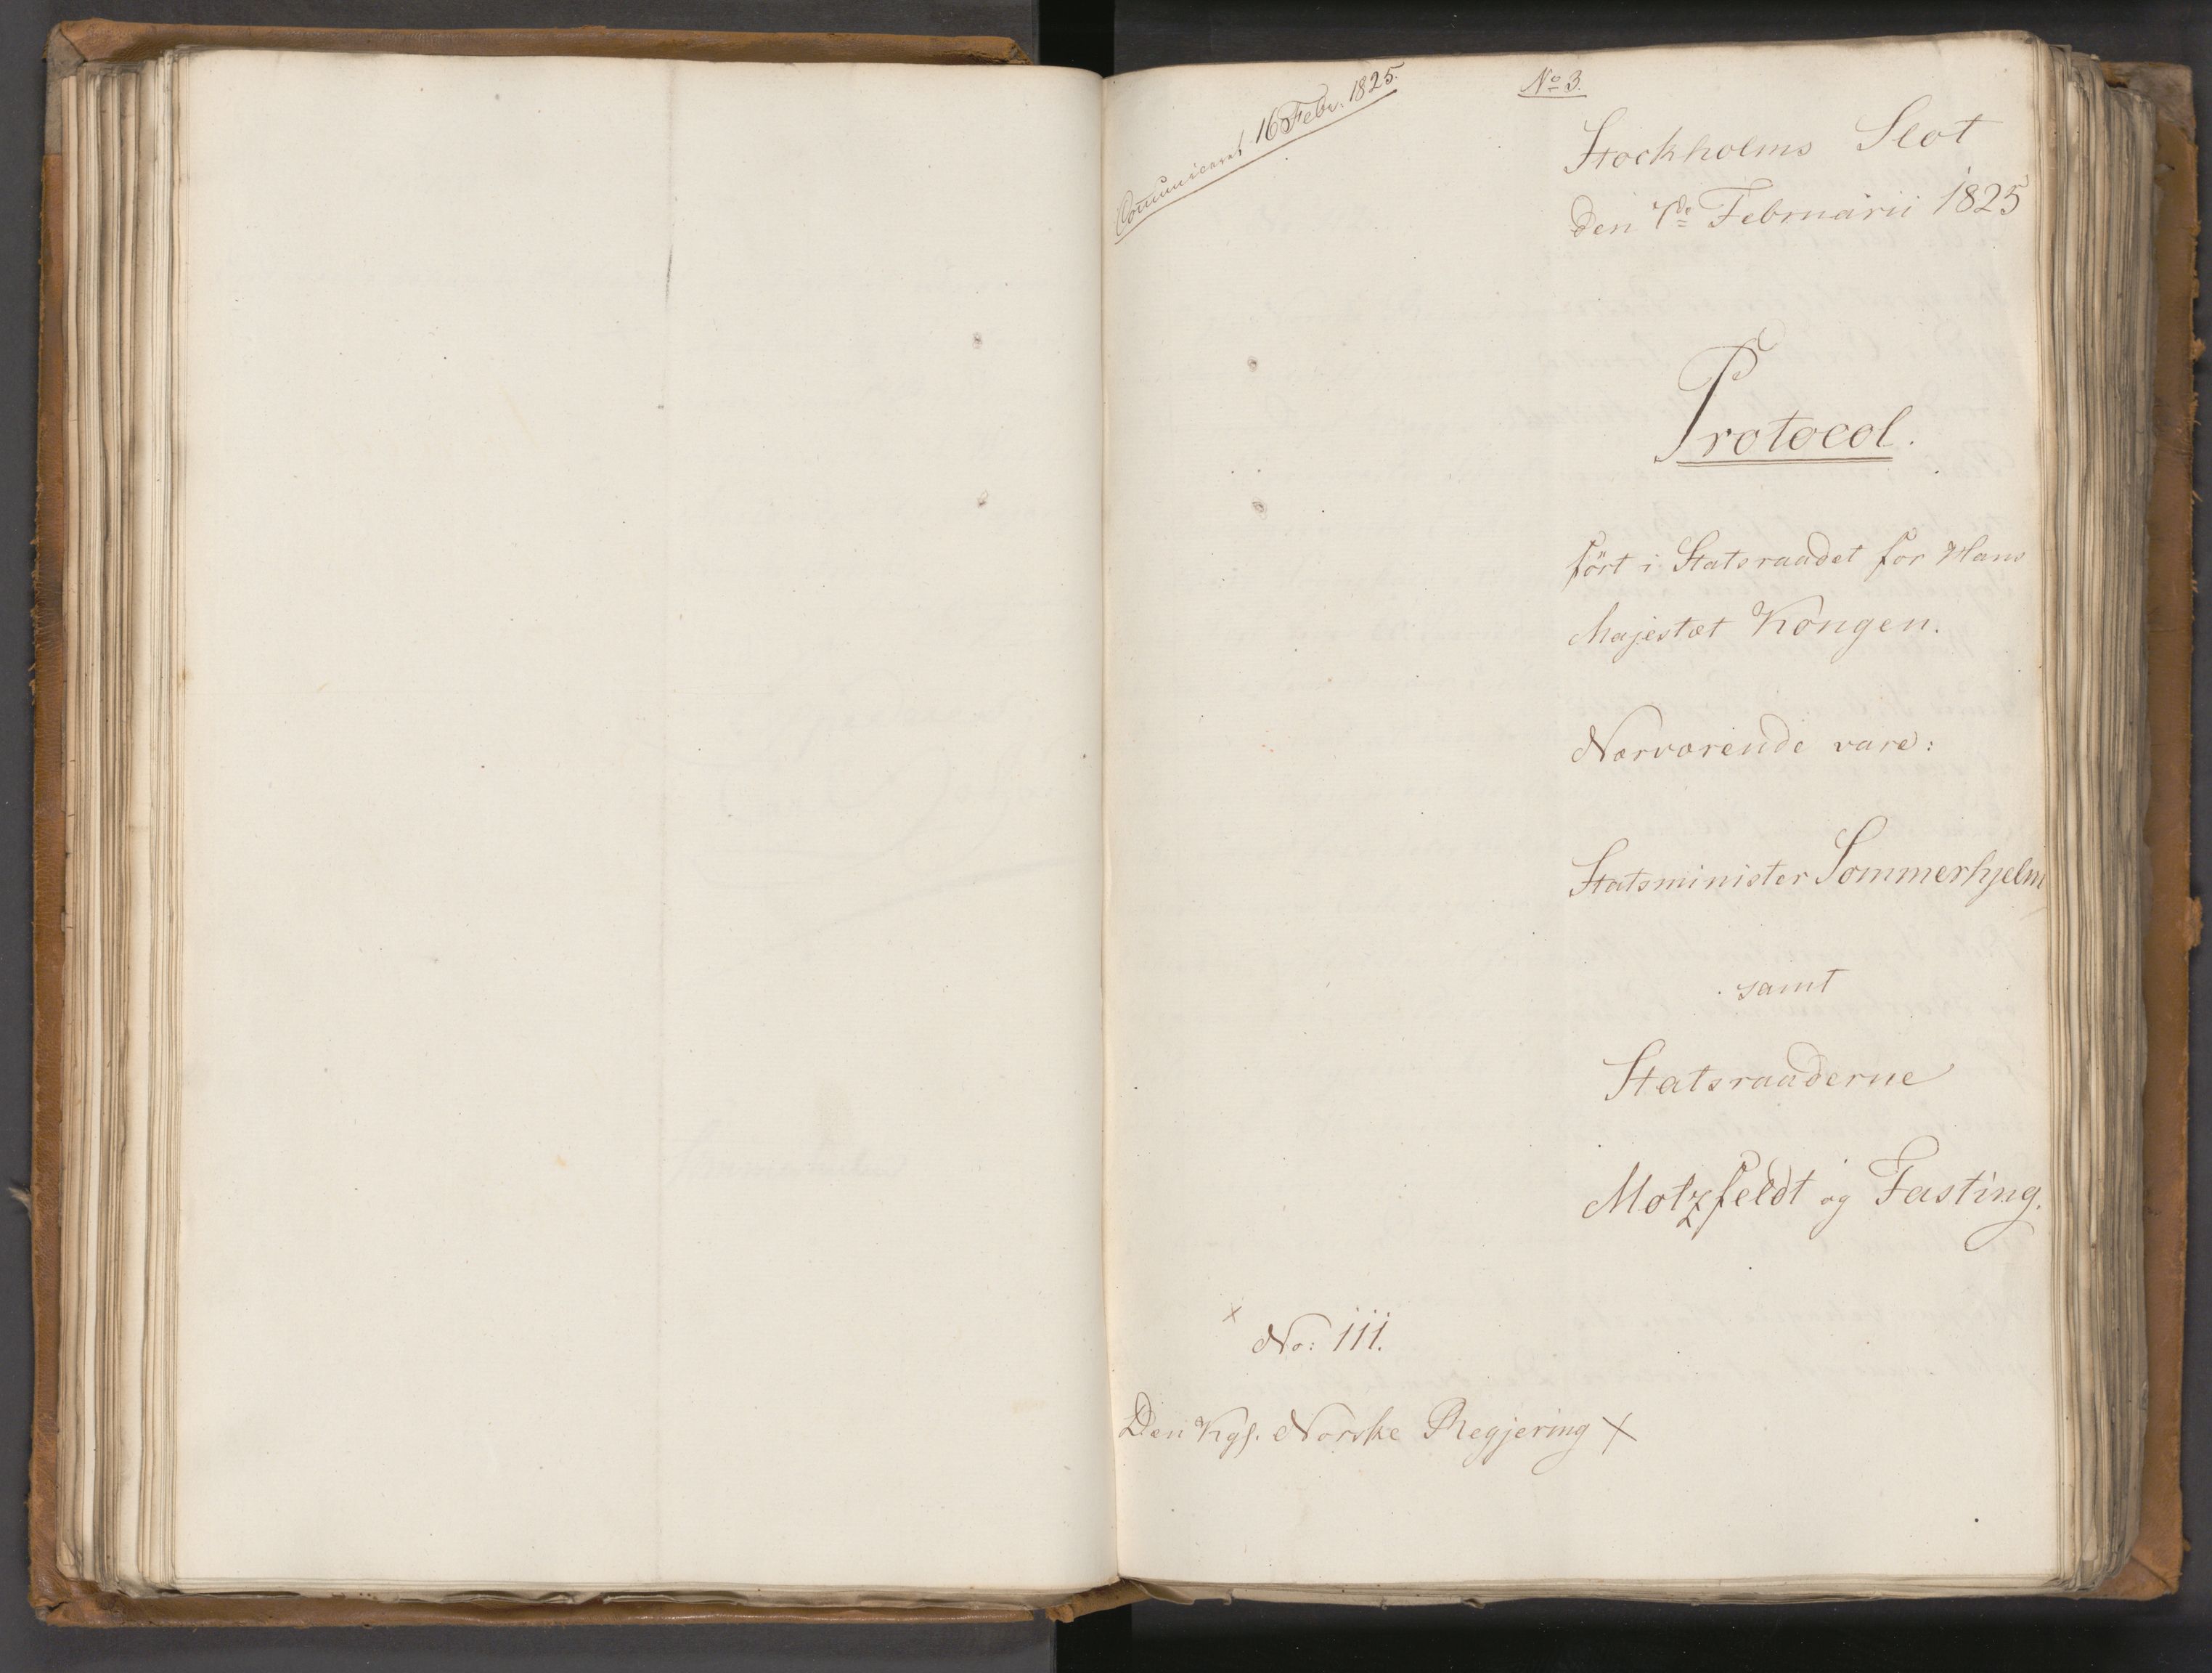 Communiceret 16 Febr. 1825.
No 3.
Stockholms Slot
den 7de Februarii 1825
Protocol.
fört i Statsraadet for Hans
Majestæt Kongen.
Nærværende vare:
Statsminister Sommerhjelm
samt
Statsraaderne
Motzfeldt og Fasting.
x No: 111.
Den Kgl. Norske Regjering x